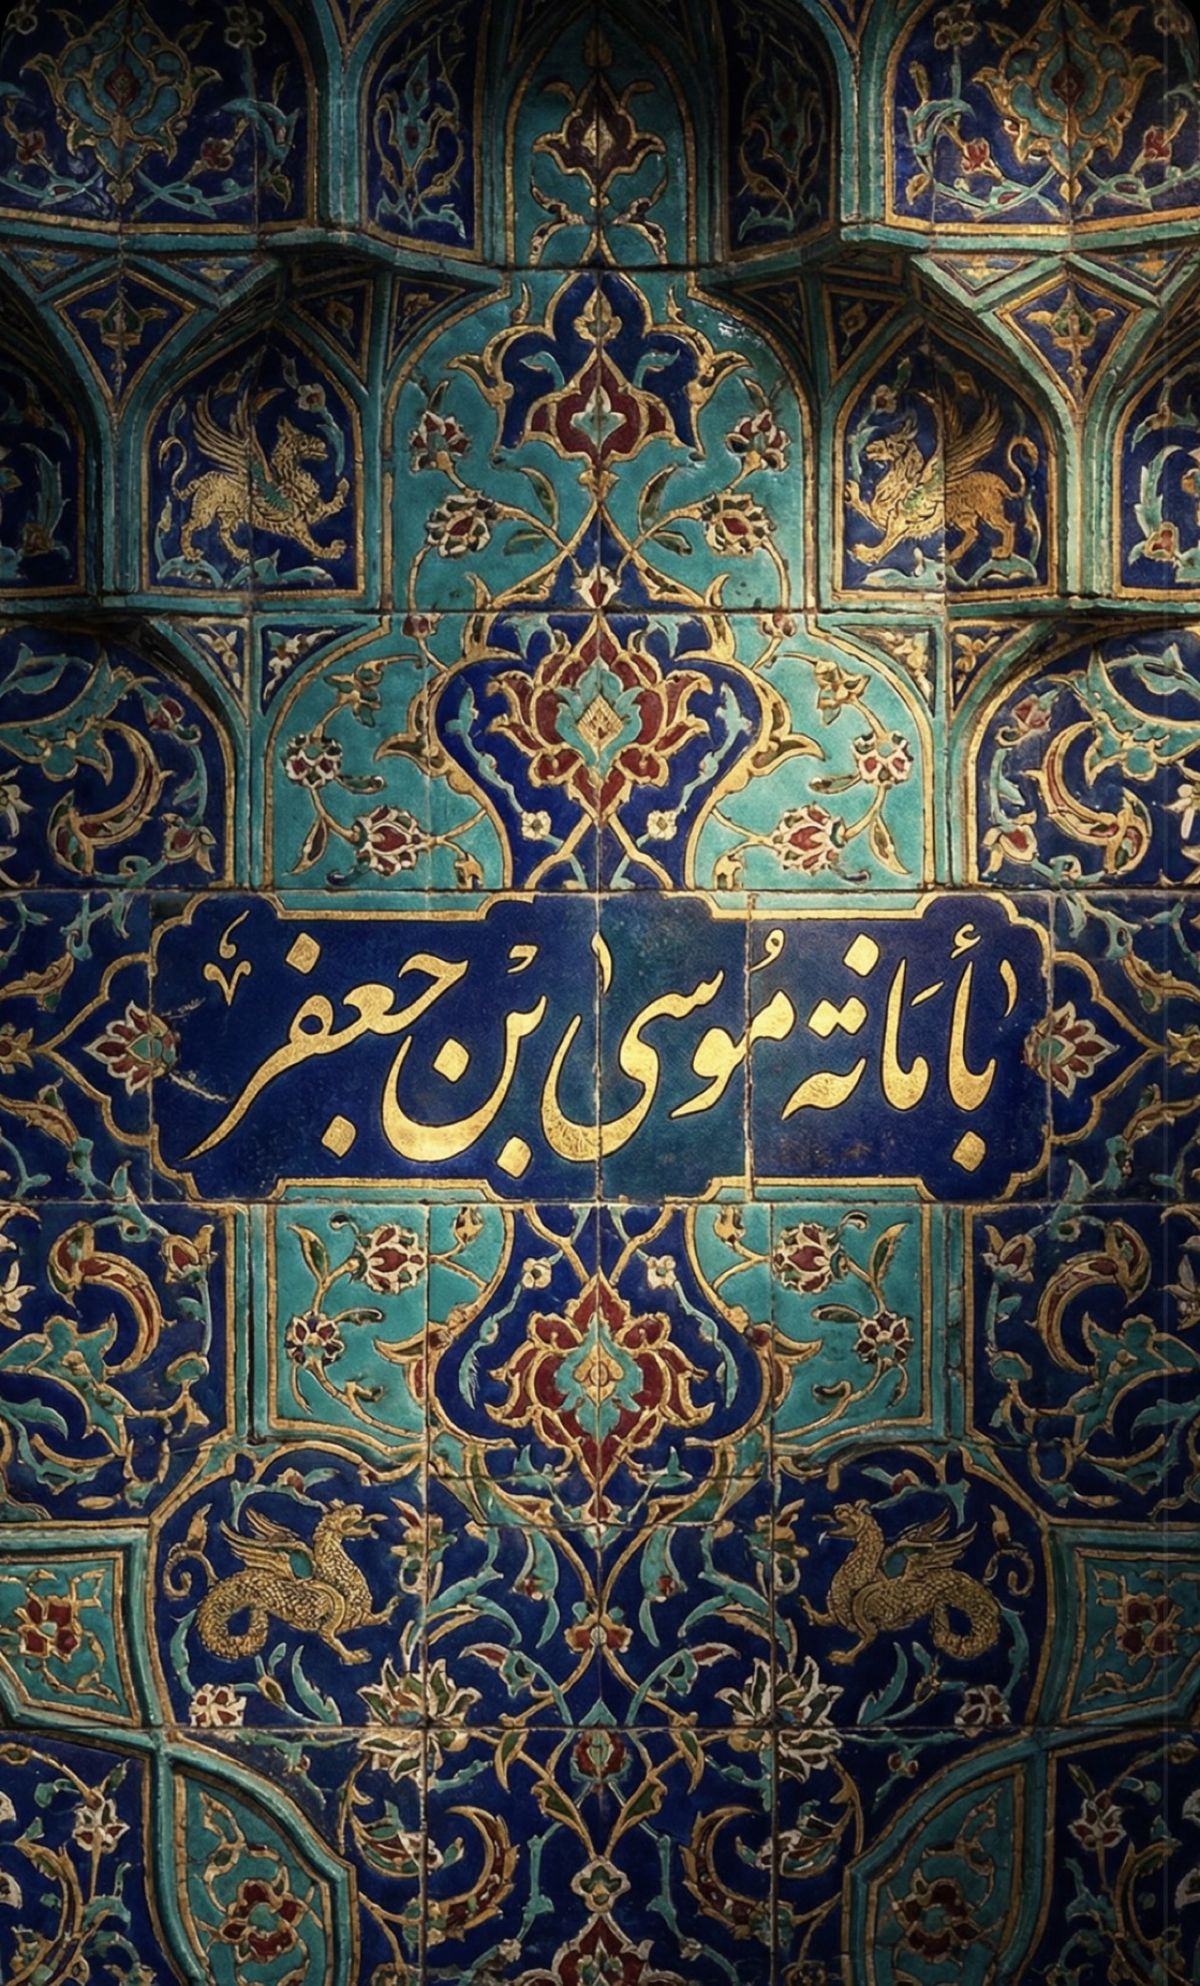 بأمَانه مُوسى بْن جعفر